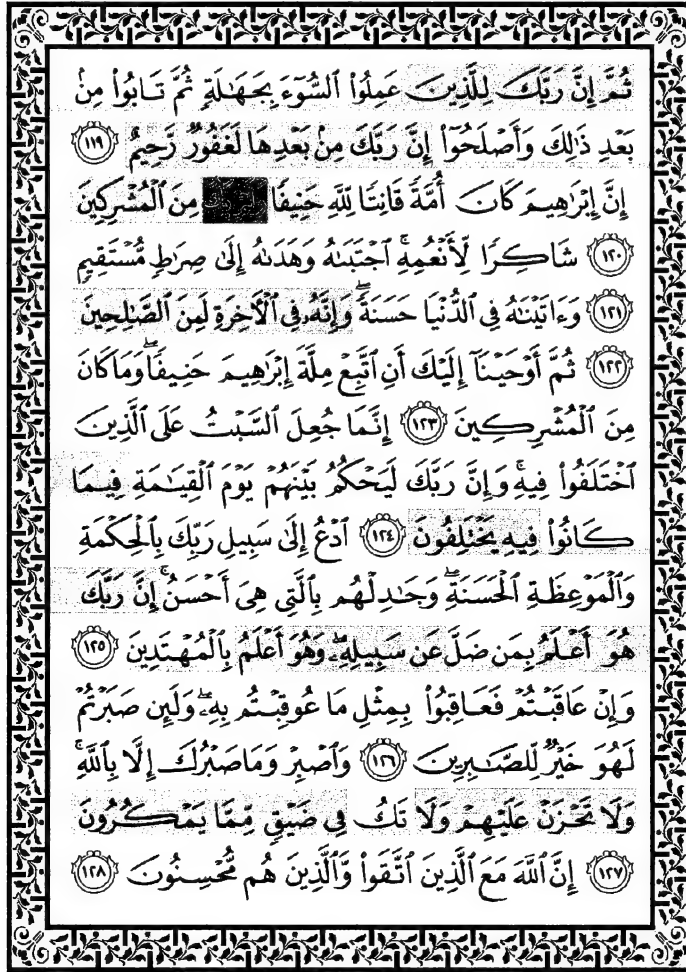 ثُمَّ إِنَّ رَبَّكَ لِلَّذِينَ عَمِلُوا۟ ٱلسُّوٓءَ بِجَهَـٰلَةٍ ثُمَّ تَابُوا۟ مِنۢ
بَعْدِ ذَٰلِكَ وَأَصْلَحُوٓا۟ إِنَّ رَبَّكَ مِنۢ بَعْدِهَا لَغَفُورٌ رَّحِيمٌ ١١٩
إِنَّ إِبْرَٰهِيمَ كَانَ أُمَّةً قَانِتًا لِّلَّهِ حَنِيفًا مِنَ ٱلْمُشْرِكِينَ
١٢٠ شَاكِرًا لِّأَنْعُمِهِ ۚ ٱجْتَبَىٰهُ وَهَدَىٰهُ إِلَىٰ صِرَٰطٍ مُّسْتَقِيمٍ
١٢١ وَءَاتَيْنَـٰهُ فِى ٱلدُّنْيَا حَسَنَةً ۖ وَإِنَّهُۥ فِى ٱلْـَٔاخِرَةِ لَمِنَ ٱلصَّـٰلِحِينَ
١٢٢ ثُمَّ أَوْحَيْنَآ إِلَيْكَ أَنِ ٱتَّبِعْ مِلَّةَ إِبْرَٰهِيمَ حَنِيفًا ۖ وَمَا كَانَ
مِنَ ٱلْمُشْرِكِينَ ١٢٣ إِنَّمَا جُعِلَ ٱلسَّبْتُ عَلَى ٱلَّذِينَ
ٱخْتَلَفُوا۟ فِيهِ ۚ وَإِنَّ رَبَّكَ لَيَحْكُمُ بَيْنَهُمْ يَوْمَ ٱلْقِيَـٰمَةِ فِيمَا
كَانُوا۟ فِيهِ يَخْتَلِفُونَ ١٢٤ ٱدْعُ إِلَىٰ سَبِيلِ رَبِّكَ بِٱلْحِكْمَةِ
وَٱلْمَوْعِظَةِ ٱلْحَسَنَةِ ۖ وَجَـٰدِلْهُم بِٱلَّتِى هِىَ أَحْسَنُ ۚ إِنَّ رَبَّكَ
هُوَ أَعْلَمُ بِمَن ضَلَّ عَن سَبِيلِهِۦ ۖ وَهُوَ أَعْلَمُ بِٱلْمُهْتَدِينَ ١٢٥
وَإِنْ عَاقَبْتُمْ فَعَاقِبُوا۟ بِمِثْلِ مَا عُوقِبْتُم بِهِۦ ۖ وَلَئِن صَبَرْتُمْ
لَهُوَ خَيْرٌ لِّلصَّـٰبِرِينَ ١٢٦ وَٱصْبِرْ وَمَا صَبْرُكَ إِلَّا بِٱللَّهِ ۚ
وَلَا تَحْزَنْ عَلَيْهِمْ وَلَا تَكُ فِى ضَيْقٍ مِّمَّا يَمْكُرُونَ
١٢٧ إِنَّ ٱللَّهَ مَعَ ٱلَّذِينَ ٱتَّقَوا۟ وَّٱلَّذِينَ هُم مُّحْسِنُونَ ١٢٨